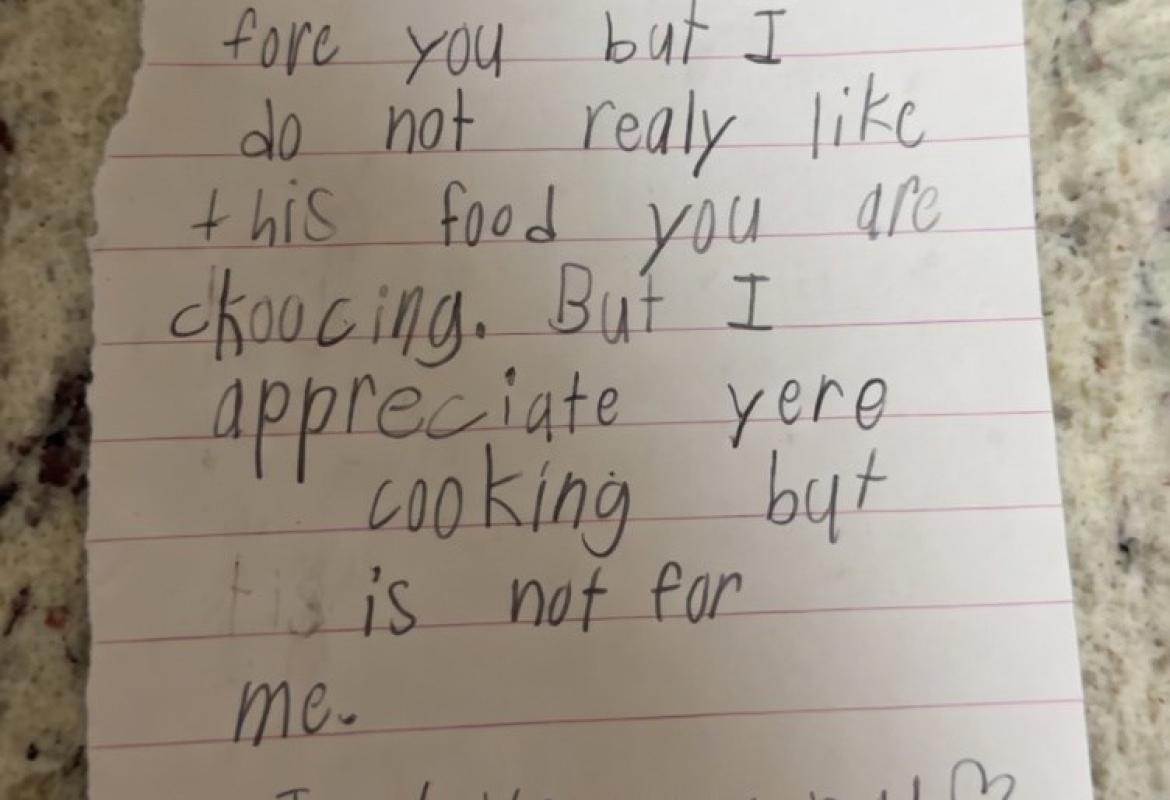 fore you but I
do not realy like
this food you are
choocing. But I
appreciate yere
cooking but
is not for
me.